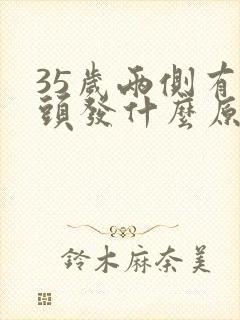 35歲兩側有
頭發什麼原
鈴木麻奈美